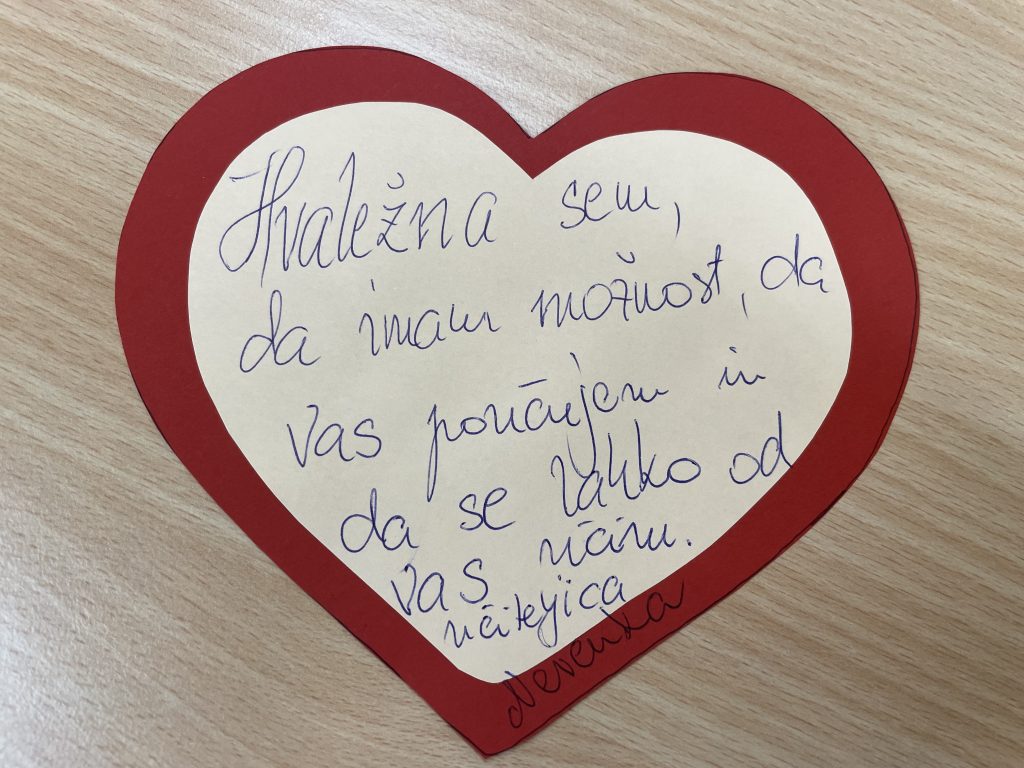 Hvaležna sem,
da imam možnost, da
vas poučujem in
da se lahko od
vas učim.
učiteljica
Nevenka